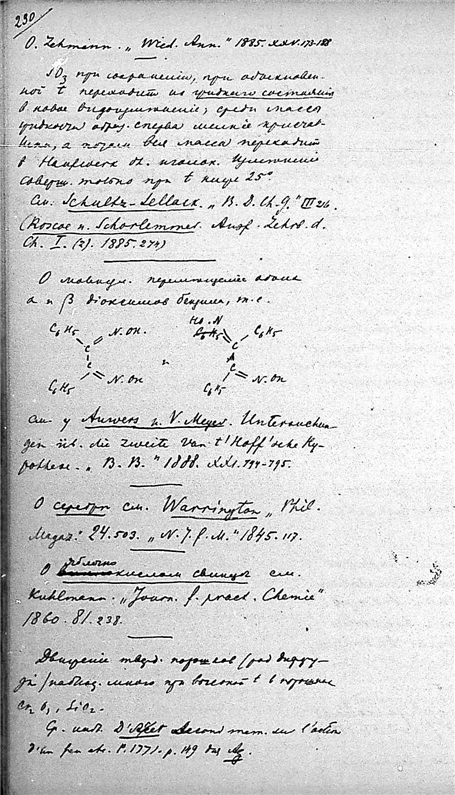 230
O. Lehmann. „Wied. Ann.“ 1885. XXV. 173-188
SO3 при сохранении, при обыкновен-
ной t переходит из жидкого состояния
в новое видоизменение; среди массы
жидкости образ. сперва мелкие кристал-
лики, а потом вся масса переходит
в Haufwerk оч. иголок. Изменение
соверш. только при t ниже 25°
См. Schultz-Sellack. „B. D. Ch. G.“ III
(Roscoe u. Schorlemmer. Ausf. Lehrb. d.
Ch. I. (2). 1885. 274)
О молекул. перемещении
α и β диоксимов бензила, т. е.
C6H5 N.OH. HO.N C6H5
C C6H5 C
C и C
C6H5 N.OH C6H5 N.OH
см. у Auwers u. V. Meyer. Untersuchun-
gen üb. die zweite van't Hoff'sche Hy-
pothese. „B. B.“ 1888. XXI. 794-795.
О серебре см. Warrington „Phil.
Magaz. 24. 503. „N. J. f. M.“ 1845. 117.
яблочно
О кислом свинце см.
Kuhlmann. „Journ. f. pract. Chemie“
1860. 81. 238.
Движение тверд. порошков (род диффу-
зии) наблюд. много при высокой t в порошке
Cr2O3, SiO2.
Ср. набл. D'Arcet Second mem. sur l'action
d'un feu etc. P. 1771. p. 149 для Ag.